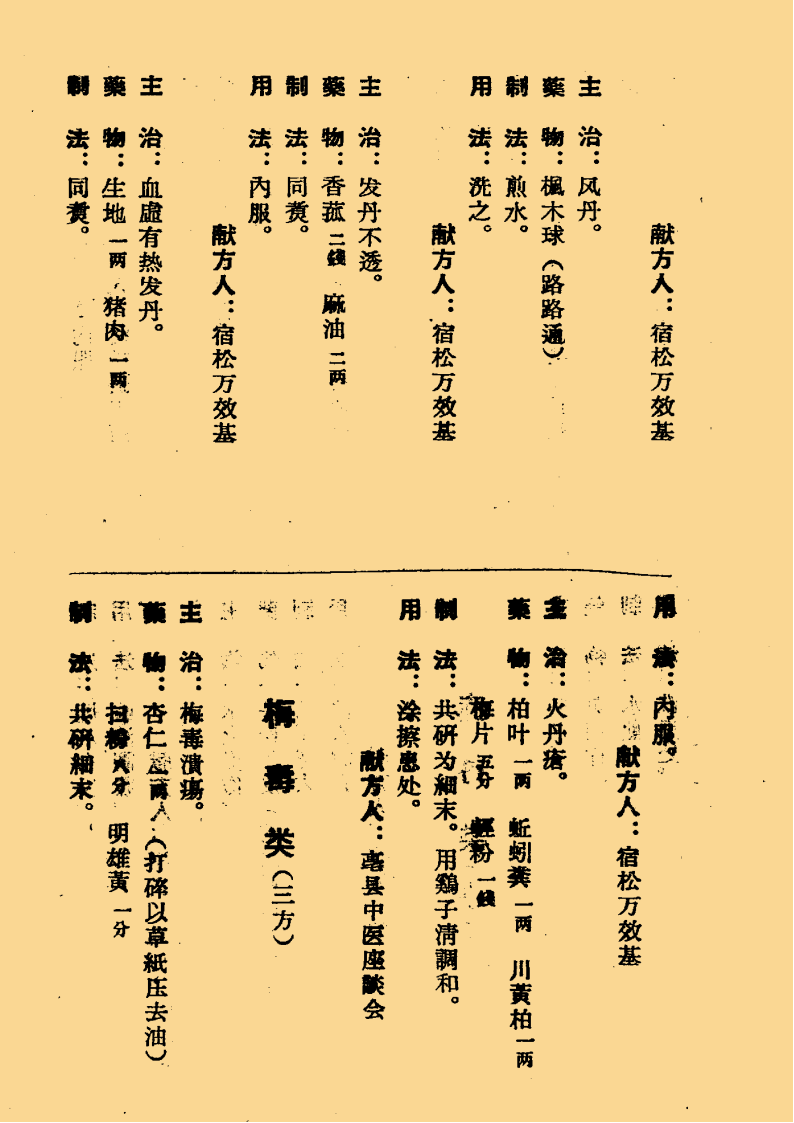 献方人：宿松万效基
主　治：风丹。
藥　物：楓木球（路路通）
制　法：煎水。
用　法：洗之。
献方人：宿松万效基
主　治：发丹不透。
藥　物：香菰二錢　麻油二两
制　法：同煑。
用　法：内服。
献方人：宿松万效基
主　治：血虛有热发丹。
藥　物：生地一两　猪肉一两
制　法：同煑。
用　法：内服。
献方人：宿松万效基
主　治：火丹瘡。
藥　物：柏叶一两　蚯蚓粪一两　川黃柏一两
梅片五分　輕粉一錢
制　法：共研为細末。用鷄子清調和。
用　法：涂擦患处。
献方人：亳县中医座談会
梅毒类（三方）
主　治：梅毒潰瘍。
藥　物：杏仁　两（打碎以草紙压去油）
扫粉八分　明雄黃一分
制　法：共研細末。